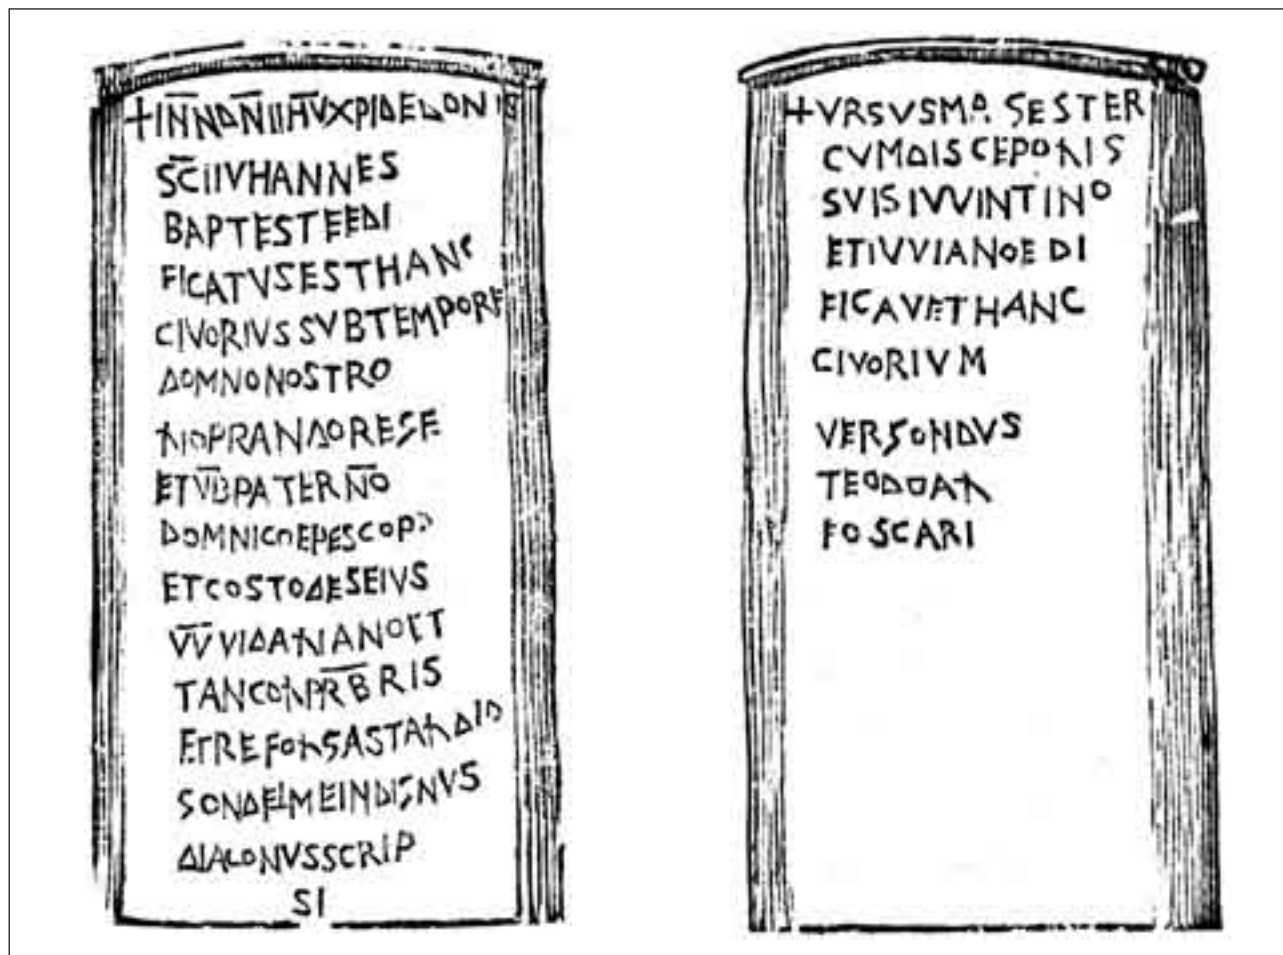 +IN̅NDN̅IIHV̅XPIDEDONIS
SC̅IIVHANNES
BAPTESTEEDI
FICATVSESTHANC
CIVORIVSSVBTEMPORE
DOMNONOSTRO
LIOPRANDOREGE
ETV̅B̅PATERN̅O
DOMNICOEPESCOPO
ETCOSTODESEIVS
V̅V̅VIDALIANOET
TANCOLPR̅B̅RIS
ETREFOLGASTALDIO
GONDELMEINDIGNVS
DIACONVSSCRIP
SI
+VRSVSMAGESTER
CVMDISCEPOLIS
SVISIVVINTINO
ETIVVIANOEDI
FICAVETHANC
CIVORIVM
VERGONDVS
TEODOAL
FOSCARI